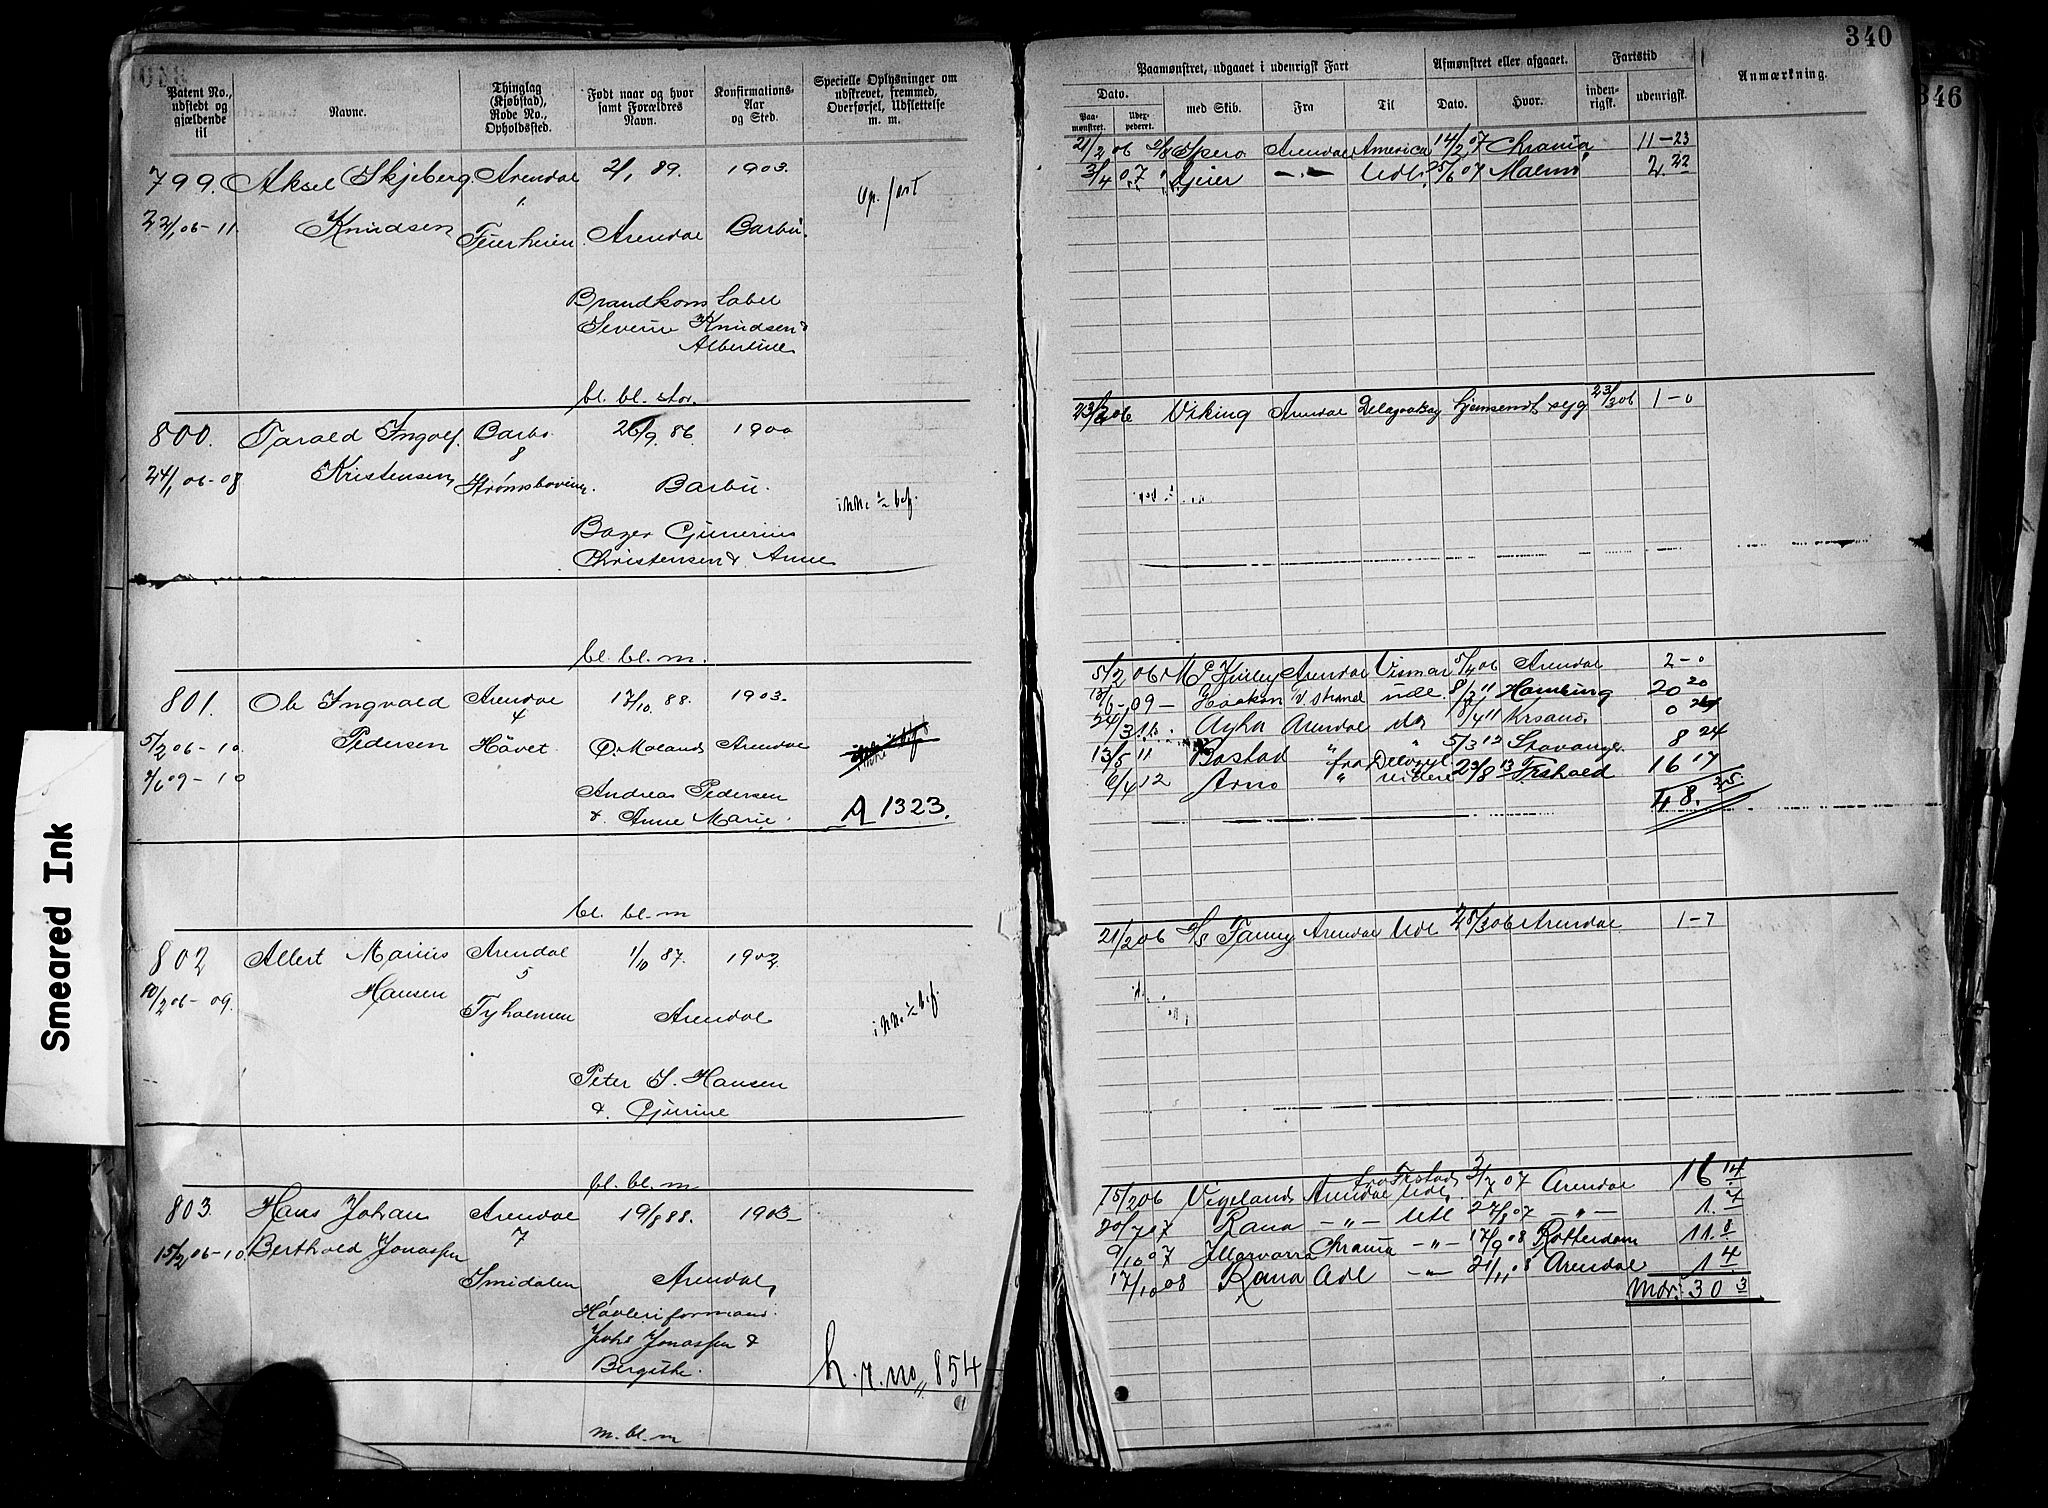 340
346
Patent No., udstedt og gjældende til
Navne.
Thinglag (Kjøbstad), Rode No., Opholdssted.
Født naar og hvor samt Forældres Navn.
Konfirmations- Aar og Sted.
Specielle Oplysninger om udskrevet, fremmed, Overførsel, Udslettelse m. m.
Paamønstret, udgaaet i udenrigsk Fart
Afmønstret eller afgaaet.
Fartstid
Anmærkning.
Dato.
Paa- mønstret.
Udex- pederet.
med Skib.
Fra
Til
Dato.
Hvor.
inden- rigsk.
udenrigsk.
799. Aksel Skjeberg Arendal 2/1 89. 1903.
22/1 06-11. Knudsen Arendal Barbu.
Brandkonstabel
Severin Knudsen &
Albertine
bl. bl. stor.
21/2 06 Spero Arendal America 14/2 07 Chrania 11-23
3/4 07 Geier -"- Udl. 25/6 07 Malmö 2 22
800. Tarald Ingolf Barbo 26/9 86 1900
8
24/1 06-08 Kristensen Barbu. ikke i bef.
Bager Gunerius
Christensen & Anne
bl. bl. m.
23/2 06 Viking Arendal Delagoabay hjemsendt syg 23/3 06 1-0
801. Ole Ingvald Arendal 17/10 88. 1903.
4
5/2 06-10 Pedersen Håvet Ø. Moland Arendal
7/6 09-10
Andreas Pedersen
& Anne Marie. A 1323.
bl. bl. m
5/2 06 Arendal Vismar 5/4 06 Arendal 2-0
Haakon V. Strand ude 8/2 11 Hamburg 20 20
Arendal do 8/4 11 Krsand. 0
13/5 11 Bastad 5/3 12 Stavanger 8 24
6/4 12 Arno 23/8 13 Frshald 16 17
48. 25
802 Albert Marius Arendal 1/10 87. 1902.
5
10/2 06-09. Hansen Tyholmen Arendal ikke i bef.
Peter S. Hansen
& Gurine
bl. bl. m
21/2 06 S/S Fanny Arendal Udl 28/3 06 Arendal 1-7
803. Hans Johan Arendal 19/8 88. 1903-
7
15/2 06-10 Berthold Jonassen
Smidalen Arendal,
Høvleriformand
Johs Jonassen &
Bergithe. h.r.no,, 854
m. bl. m
fra Frstad
15/2 06 Vigeland Arendal Udl. 3/7 07 Arendal 16 14
20/7 07 Rana -"- Udl 27/8 07 -"- 1. 7
9/10 07 Illarvarra Chrania -"- 17/9 08 Rotterdam 11. 8
17/10 08 Rana Udl -"- 21/11 08 Arendal 1 4
Mdr: 30 3
Smeared Ink